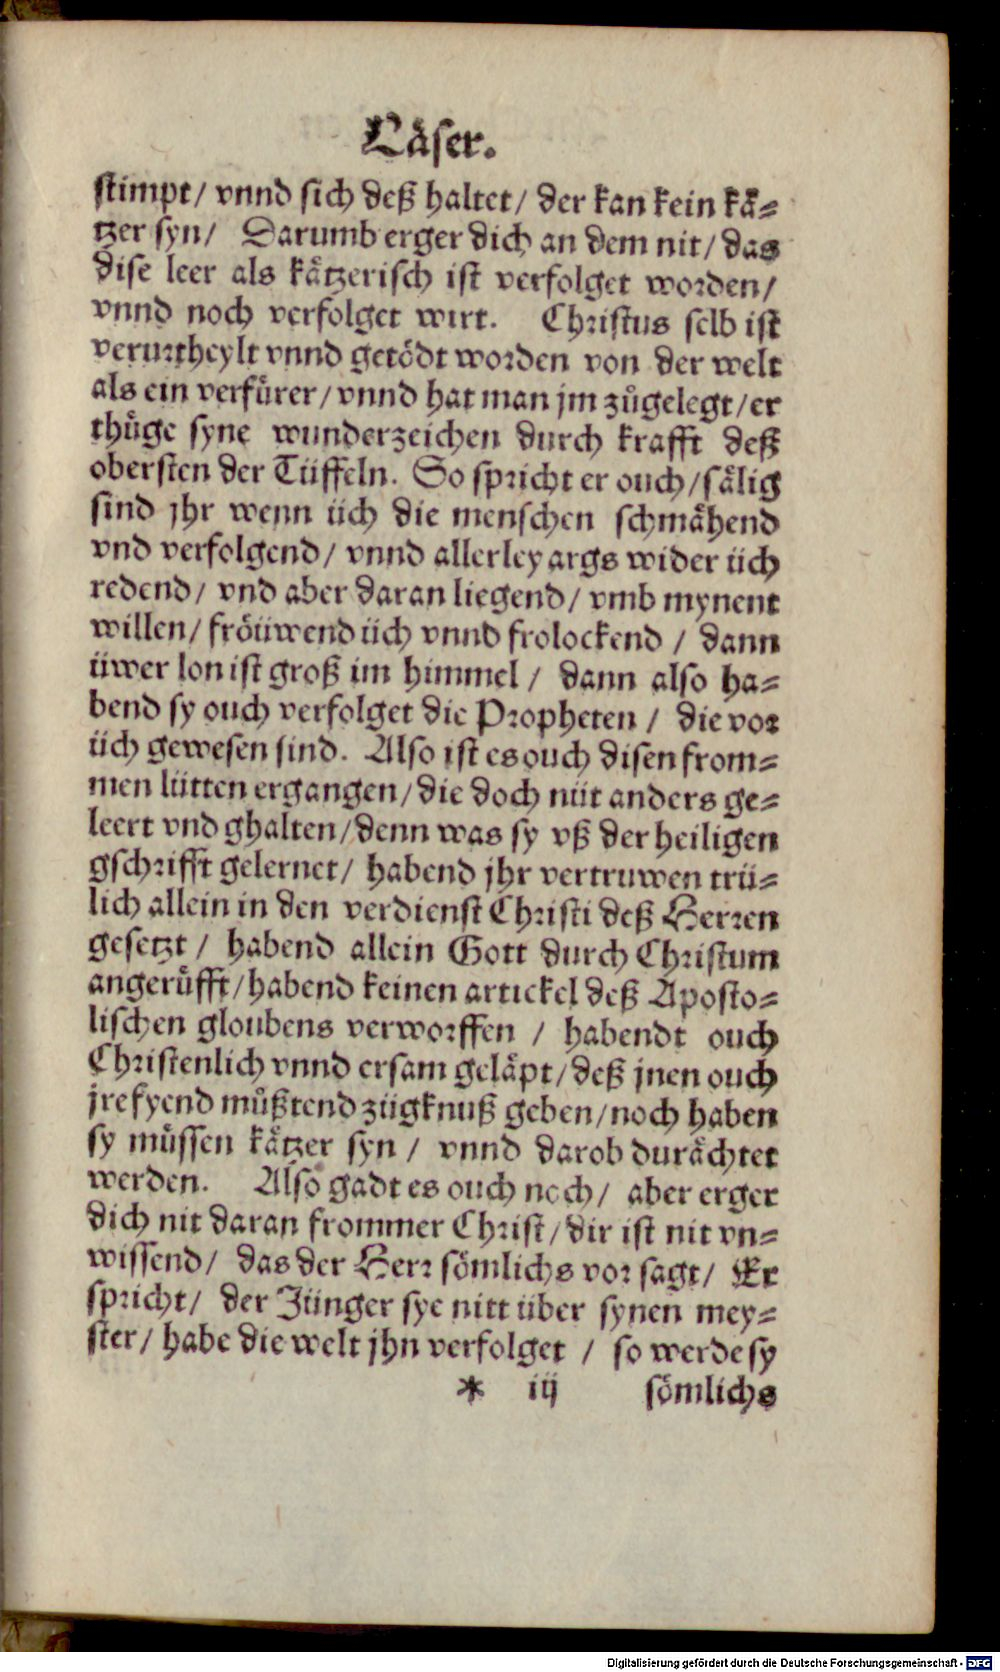 Läser.
stimpt/ vnnd sich deß haltet/ der kan kein kä⸗
tzer syn/ Darumb erger dich an dem nit/ das
dise leer als kätzerisch ist verfolget worden/
vnnd noch verfolget wirt. Christus selb ist
verurtheylt vnnd getödt worden von der welt
als ein verfürer/ vnnd hat man jm zůgelegt/ er
thüge syne wunderzeichen durch krafft deß
obersten der Tüffeln. So spricht er ouch/ sälig
sind jhr wenn üch die menschen schmähend
vnd verfolgend/ vnnd allerley args wider üch
redend/ vnd aber daran liegend/ vmb mynent
willen/ fröüwend üch vnnd frolockend / dann
üwer lon ist groß im himmel / dann also ha⸗
bend sy ouch verfolget die Propheten / die vor
üch gewesen sind. Also ist es ouch disen from⸗
men lütten ergangen/ die doch nüt anders ge⸗
leert vnd ghalten/ denn was sy vß der heiligen
gschrifft gelernet/ habend jhr vertruwen trü⸗
lich allein in den verdienst Christi deß Herren
gesetzt / habend allein Gott durch Christum
angerüfft/ habend keinen artickel deß Aposto⸗
lischen gloubens verworffen / habendt ouch
Christenlich vnnd ersam geläpt/ deß jnen ouch
jre fyend müßtend zügknuß geben/ noch haben
sy müssen kätzer syn / vnnd darob durächtet
werden. Also gadt es ouch noch/ aber erger
dich nit daran frommer Christ/ dir ist nit vn⸗
wissend/ das der Herr sömlichs vor sagt/ Er
spricht/ der Jünger sye nitt über synen mey⸗
ster/ habe die welt jhn verfolget / so werde sy
* iij sömlichs
Digitalisierung gefördert durch die Deutsche Forschungsgemeinschaft - DFG